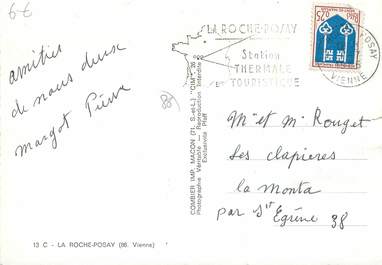 6€
amitiés
de nous deux
margot Pierre
88
LA ROCHE-POSAY
Station
THERMALE
ET TOURISTIQUE
VIENNE
COMBIER IMP. MACON (71, S.-et-L.) "CIM"
Photographie Véritable — Reproduction interdite
Exclusivité Pfaff
Mme et Mr Rouget
Les clapières
la Monta
par St Egrève 38
13 C - LA ROCHE-POSAY (86. Vienne)